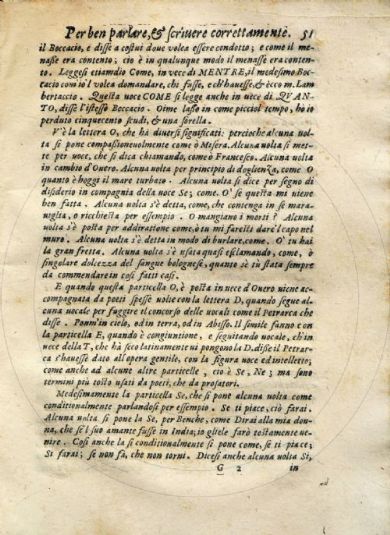 Per ben parlare, & scriuere correttamente. 51
il Boccacio, e disse a costui doue volea essere condotto; e come il me-
nasse era contento; ciò è in qualunque modo il menasse era conten-
to. Leggesi etiamdio Come, in vece di MENTRE, il medesimo Boc-
cacio com io'l volea domandare, chi fusse, e ch'hauesse, & ecco m. Lam
bertaccio. Questa uoce COME si legge anche in uece di QVAN-
TO, disse l'istesso Boccacio. Oime lasso in come picciol tempo, ho io
perduto cinquecento scudi, & una sorella.
V'è la lettera O, che hà diuersi significati: percioche alcuna uol-
ta si pone compassioneuolmente come ò Misera. Alcuna uolta si met-
te per uoce, che si dica chiamando, come ò Francesco. Alcuna uolta
in cambio d'Ouero. Alcuna uolta per principio di doglienza, come O
quanto è hoggi il mare turbato. Alcuna uolta si dice per segno di
disiderio in compagnia della uoce Se; come. O' se questa mi uiene
ben fatta. Alcuna uolta s'è detta, come, che contenga in se mara-
uiglia, o ricchiesta per essempio. O mangiano i morti? Alcuna
uolta s'è posta per additatione come, ò tu mi faresti dare'l capo nel
muro. Alcuna uolta s'è detta in modo di burlare, come. O' tu hai
la gran fretta. Alcuna uolta s'è usata quasi esclamando, come, ò
singolare dolcezza del sangue bolognese, quanto sè tu stata sempre
da commendare in così fatti casi.
E quando questa particella O, è posta in uece d'Ouero uiene ac-
compagnata da poeti spesse uolte con la lettera D, quando segue al-
cuna uocale per fuggire il concorso delle uocali come il Petrarca che
disse. Ponmi'n cielo, od in terra, od in Abisso. Il simile fanno con
la particella E, quando è congiuntione, e seguitando uocale, ch'in
uece della T, che hà seco latinamente ui pongono la D. disse il Petrar-
ca s'hauesse dato all'opera gentile, con la figura uoce ed intelletto;
come anche ad alcune altre particelle, ciò è Se, Ne; ma sono
termini più tosto usati da poeti, che da prosatori.
Medesimamente la particella Se, che si pone alcuna uolta come
conditionalmente parlandosi per essempio. Se ti piace, ciò farai.
Alcuna uolta si pone la Se, per Benche, come Dirai alla mia don-
na, che se'l suo amante fusse in India; io gliele farò tostamente ue-
nire. Così anche la si conditionalmente si pone come, se ti piace;
Si farai; se non fà, che non torni. Dicesi anche alcuna uolta Si,
G 2 in